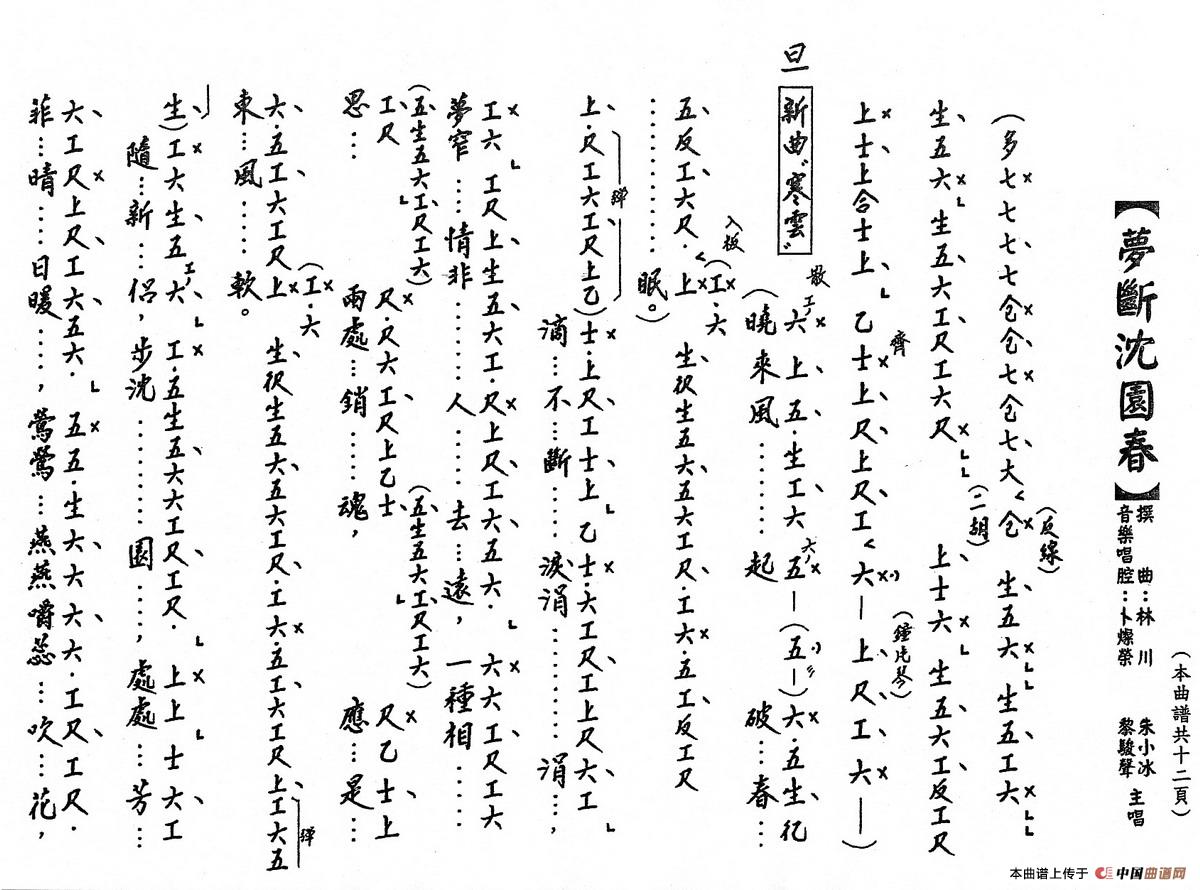 【夢斷沈園春】
撰曲：林川
音樂唱腔：卜燦榮
朱小冰
黎駿聲
主唱
（本曲譜共十二頁）
（反線）
（多七七七七仓仓七仓七大く仓 生五六 生五工六
（二胡）
生五六 生五六工尺工六尺 上士六 生五六工反工尺
齊
（鐘片琴）
上士上合士上 乙士上尺上尺工く六—上尺工六—）
旦
新曲“寒雲”
散工 六上五生工六五—（五—）六·五生伬
（曉來風……起 破…春…
入板
五反工六尺·く上（工·六 生伬生五六五六工尺·工六·五工反工尺
………眠。）
彈
上·尺工六工尺上乙）士·上尺工士上 乙士·六工尺工上尺六工
滴…不…斷 淚涓………涓…，
工六 工尺上生五六工·尺上尺工六五六· 六六工尺工六
夢窄…情非………人……去…遠，一種相……
（五生五六工尺工六）
工尺 尺·尺六工尺上乙士（五生五六工尺工六）尺乙士上
思… 兩處…銷……魂， 應…是…
六·五工六工尺上（工·六 生伬生五六五六工尺·工六·五工六工尺上工六五
彈
東…風……軟。
生）工六生五六 工·五生五六六工尺工尺· 上上士六工
隨…新…侶，步沈………園………，處處…芳…
六工尺上尺工六五六· 五五·生六六六六·工尺工尺·
菲…晴……日暖……，鶯鶯…燕燕嚼蕊…吹…花，
本曲谱上传于 中国曲谱网